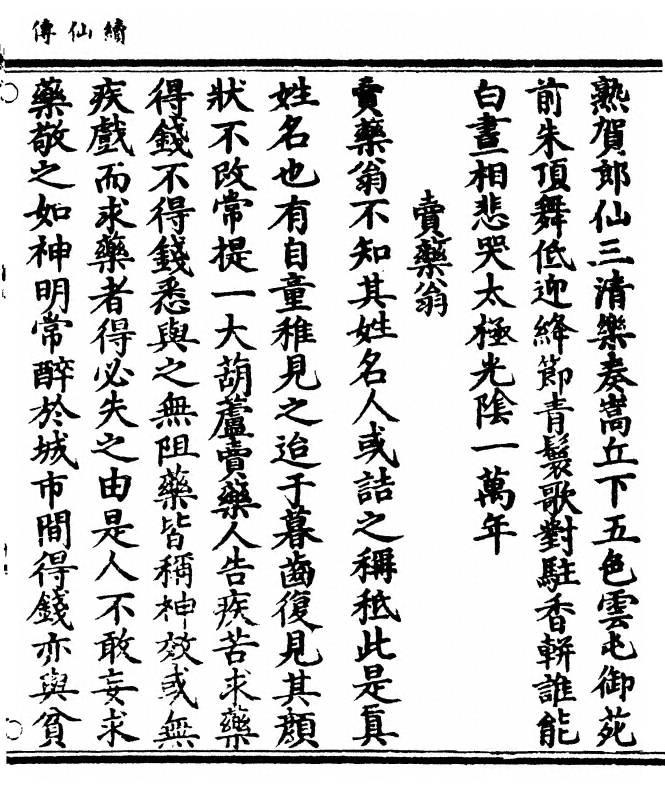 續仙傳
熟賀郎仙三清樂奏嵩丘下五色雲屯御苑
前朱頂舞低迎絳節青鬟歌對駐香輧誰能
白晝相悲哭太極光陰一萬年
賣藥翁
賣藥翁不知其姓名人或詰之稱秪此是眞
姓名也有自童稚見之迨于暮齒復見其顏
狀不改常提一大葫蘆賣藥人告疾苦求藥
得錢不得錢悉與之無阻藥皆稱神效或無
疾戲而求藥者得必失之由是人不敢妄求
藥敬之如神明常醉於城市間得錢亦與貧